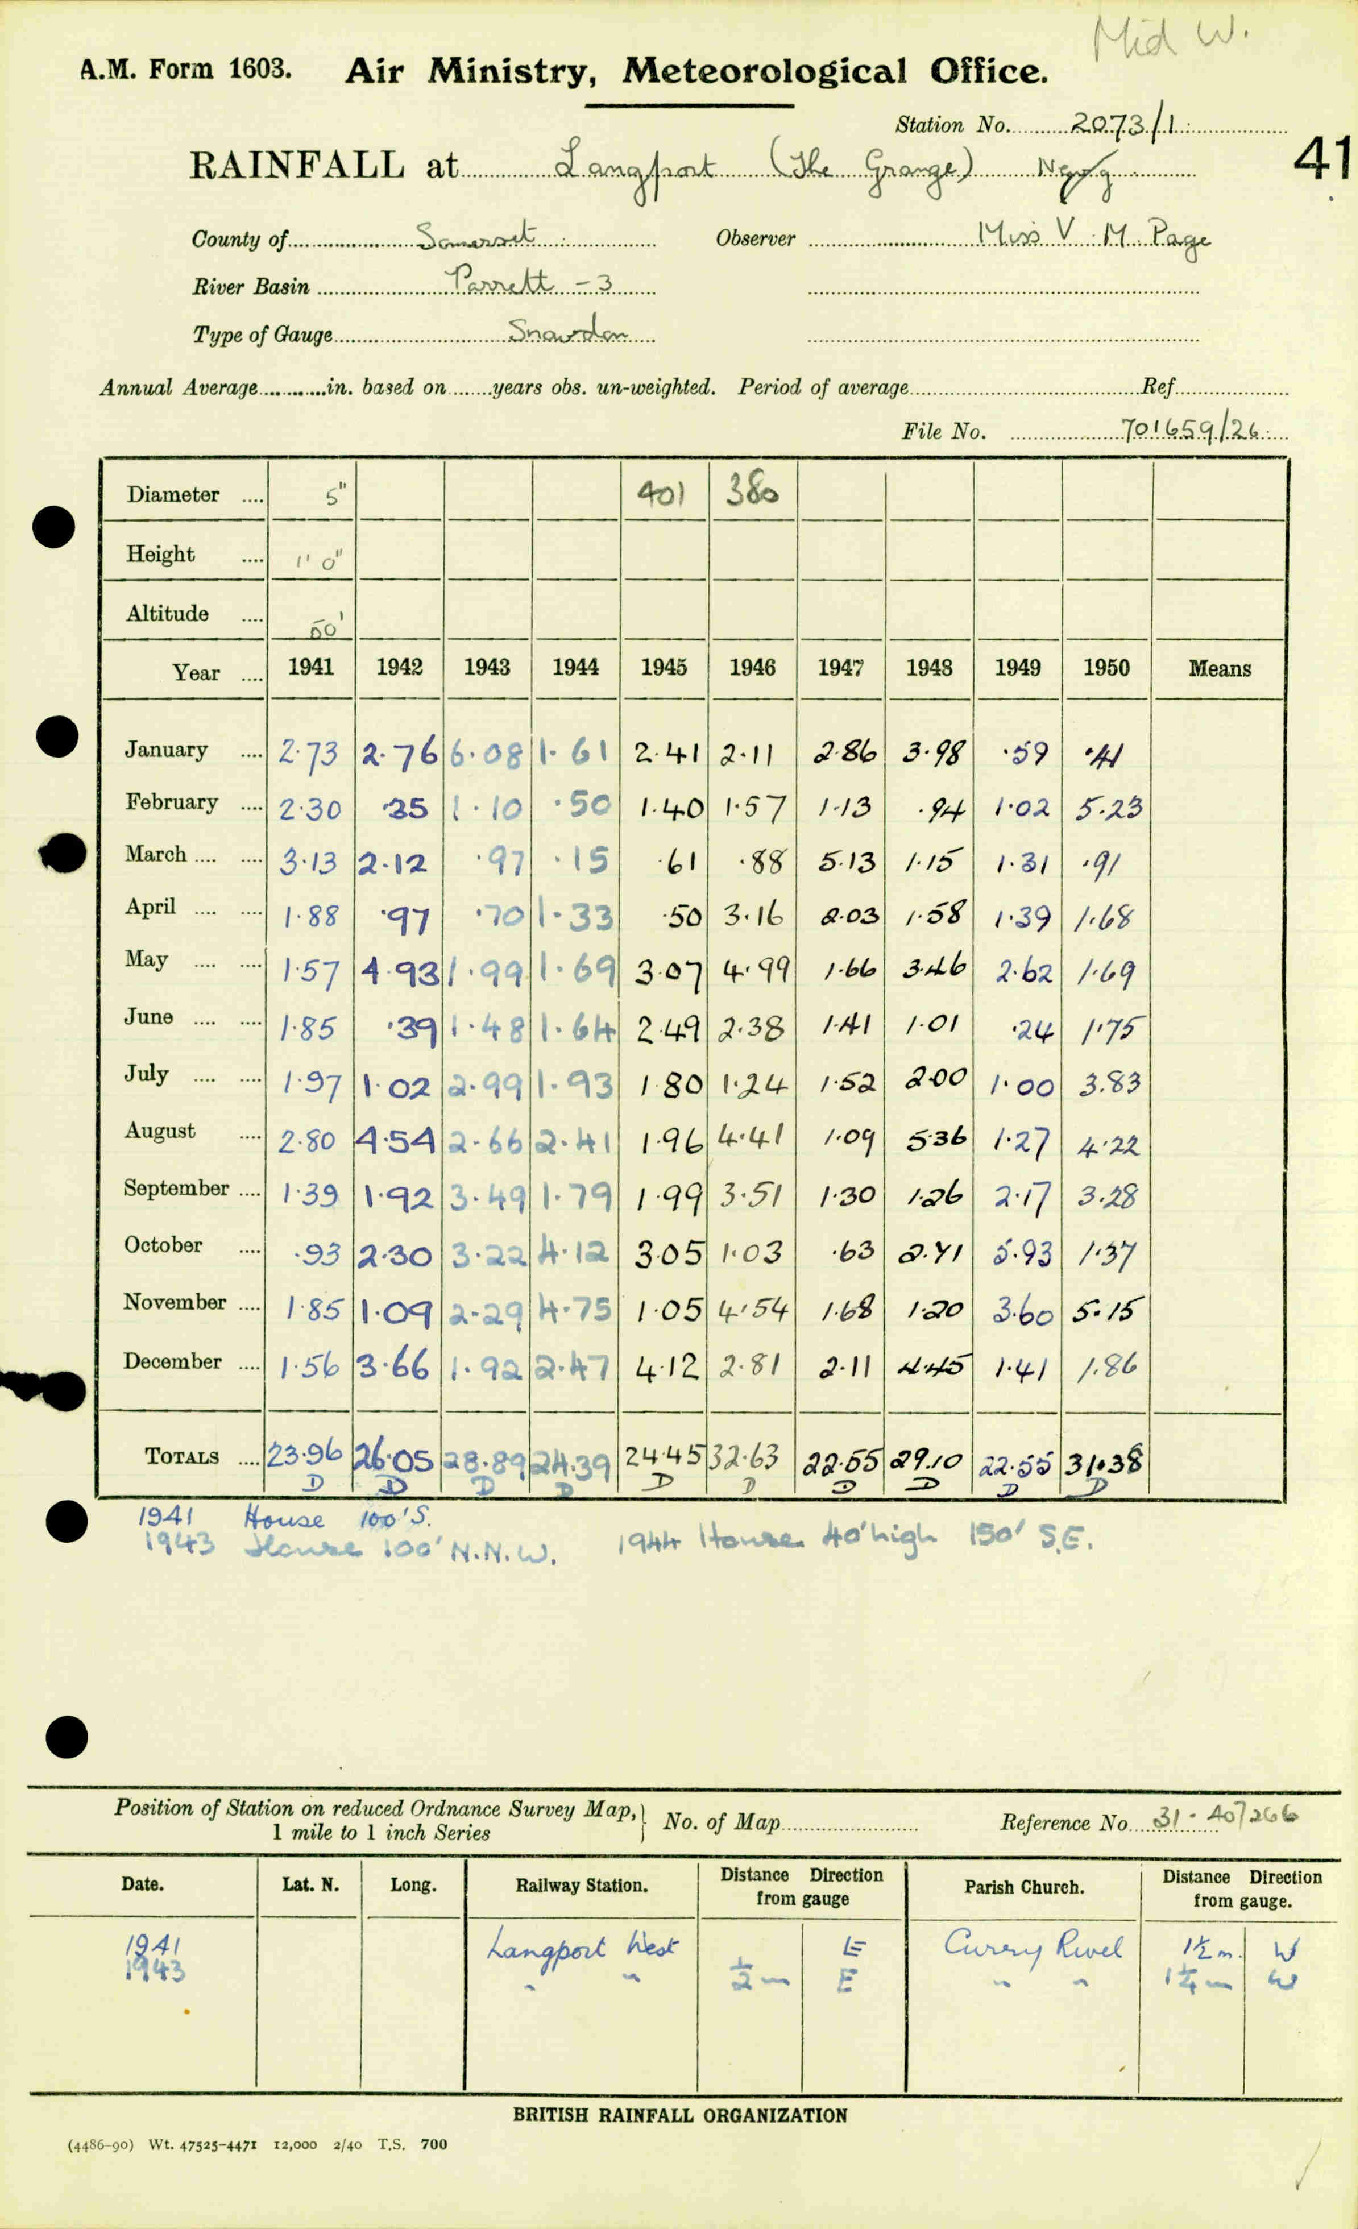 Mid W.
A.M. Form 1603. Air Ministry, Meteorological Office.
Station No. 2073/1
RAINFALL at Langport (The Grange) 41
County of Somerset Observer Miss V. M. Page
River Basin Parrett - 3
Type of Gauge Snowdon
Annual Average in. based on years obs. un-weighted. Period of average Ref
File No. 701659/26
Diameter 5" 401 380
Height 1' 0"
Altitude 50'
Year 1941 1942 1943 1944 1945 1946 1947 1948 1949 1950 Means
January 2.73 2.76 6.08 1.61 2.41 2.11 2.86 3.98 .59 .41
February 2.30 .35 1.10 .50 1.40 1.57 1.13 .94 1.02 5.23
March 3.13 2.12 .97 .15 .61 .88 5.13 1.15 1.31 .91
April 1.88 .97 .70 1.33 .50 3.16 2.03 1.58 1.39 1.68
May 1.57 4.93 1.99 1.69 3.07 4.99 1.66 3.46 2.62 1.69
June 1.85 .39 1.48 1.64 2.49 2.38 1.41 1.01 .24 1.75
July 1.97 1.02 2.99 1.93 1.80 1.24 1.52 2.00 1.00 3.83
August 2.80 4.54 2.66 2.41 1.96 4.41 1.09 5.36 1.27 4.22
September 1.39 1.92 3.49 1.79 1.99 3.51 1.30 1.26 2.17 3.28
October .93 2.30 3.22 4.12 3.05 1.03 .63 2.71 5.93 1.37
November 1.85 1.09 2.29 4.75 1.05 4.54 1.68 1.20 3.60 5.15
December 1.56 3.66 1.92 2.47 4.12 2.81 2.11 4.45 1.41 1.86
TOTALS 23.96 26.05 28.89 24.39 24.45 32.63 22.55 29.10 22.55 31.38
D D D D D D D D D D
1941 House 100' S.
1943 House 100' N.N.W. 1944 House 40' high 150' S.E.
Position of Station on reduced Ordnance Survey Map, 1 mile to 1 inch Series No. of Map Reference No. 31.407266
Date. Lat. N. Long. Railway Station. Distance Direction from gauge Parish Church. Distance Direction from gauge.
1941 Langport West E Curry Rivel 1½ m. W
1943 " " ½ m E " " 1¼ m W
BRITISH RAINFALL ORGANIZATION
(4486-90) Wt. 47525-4471 12,000 2/40 T.S. 700